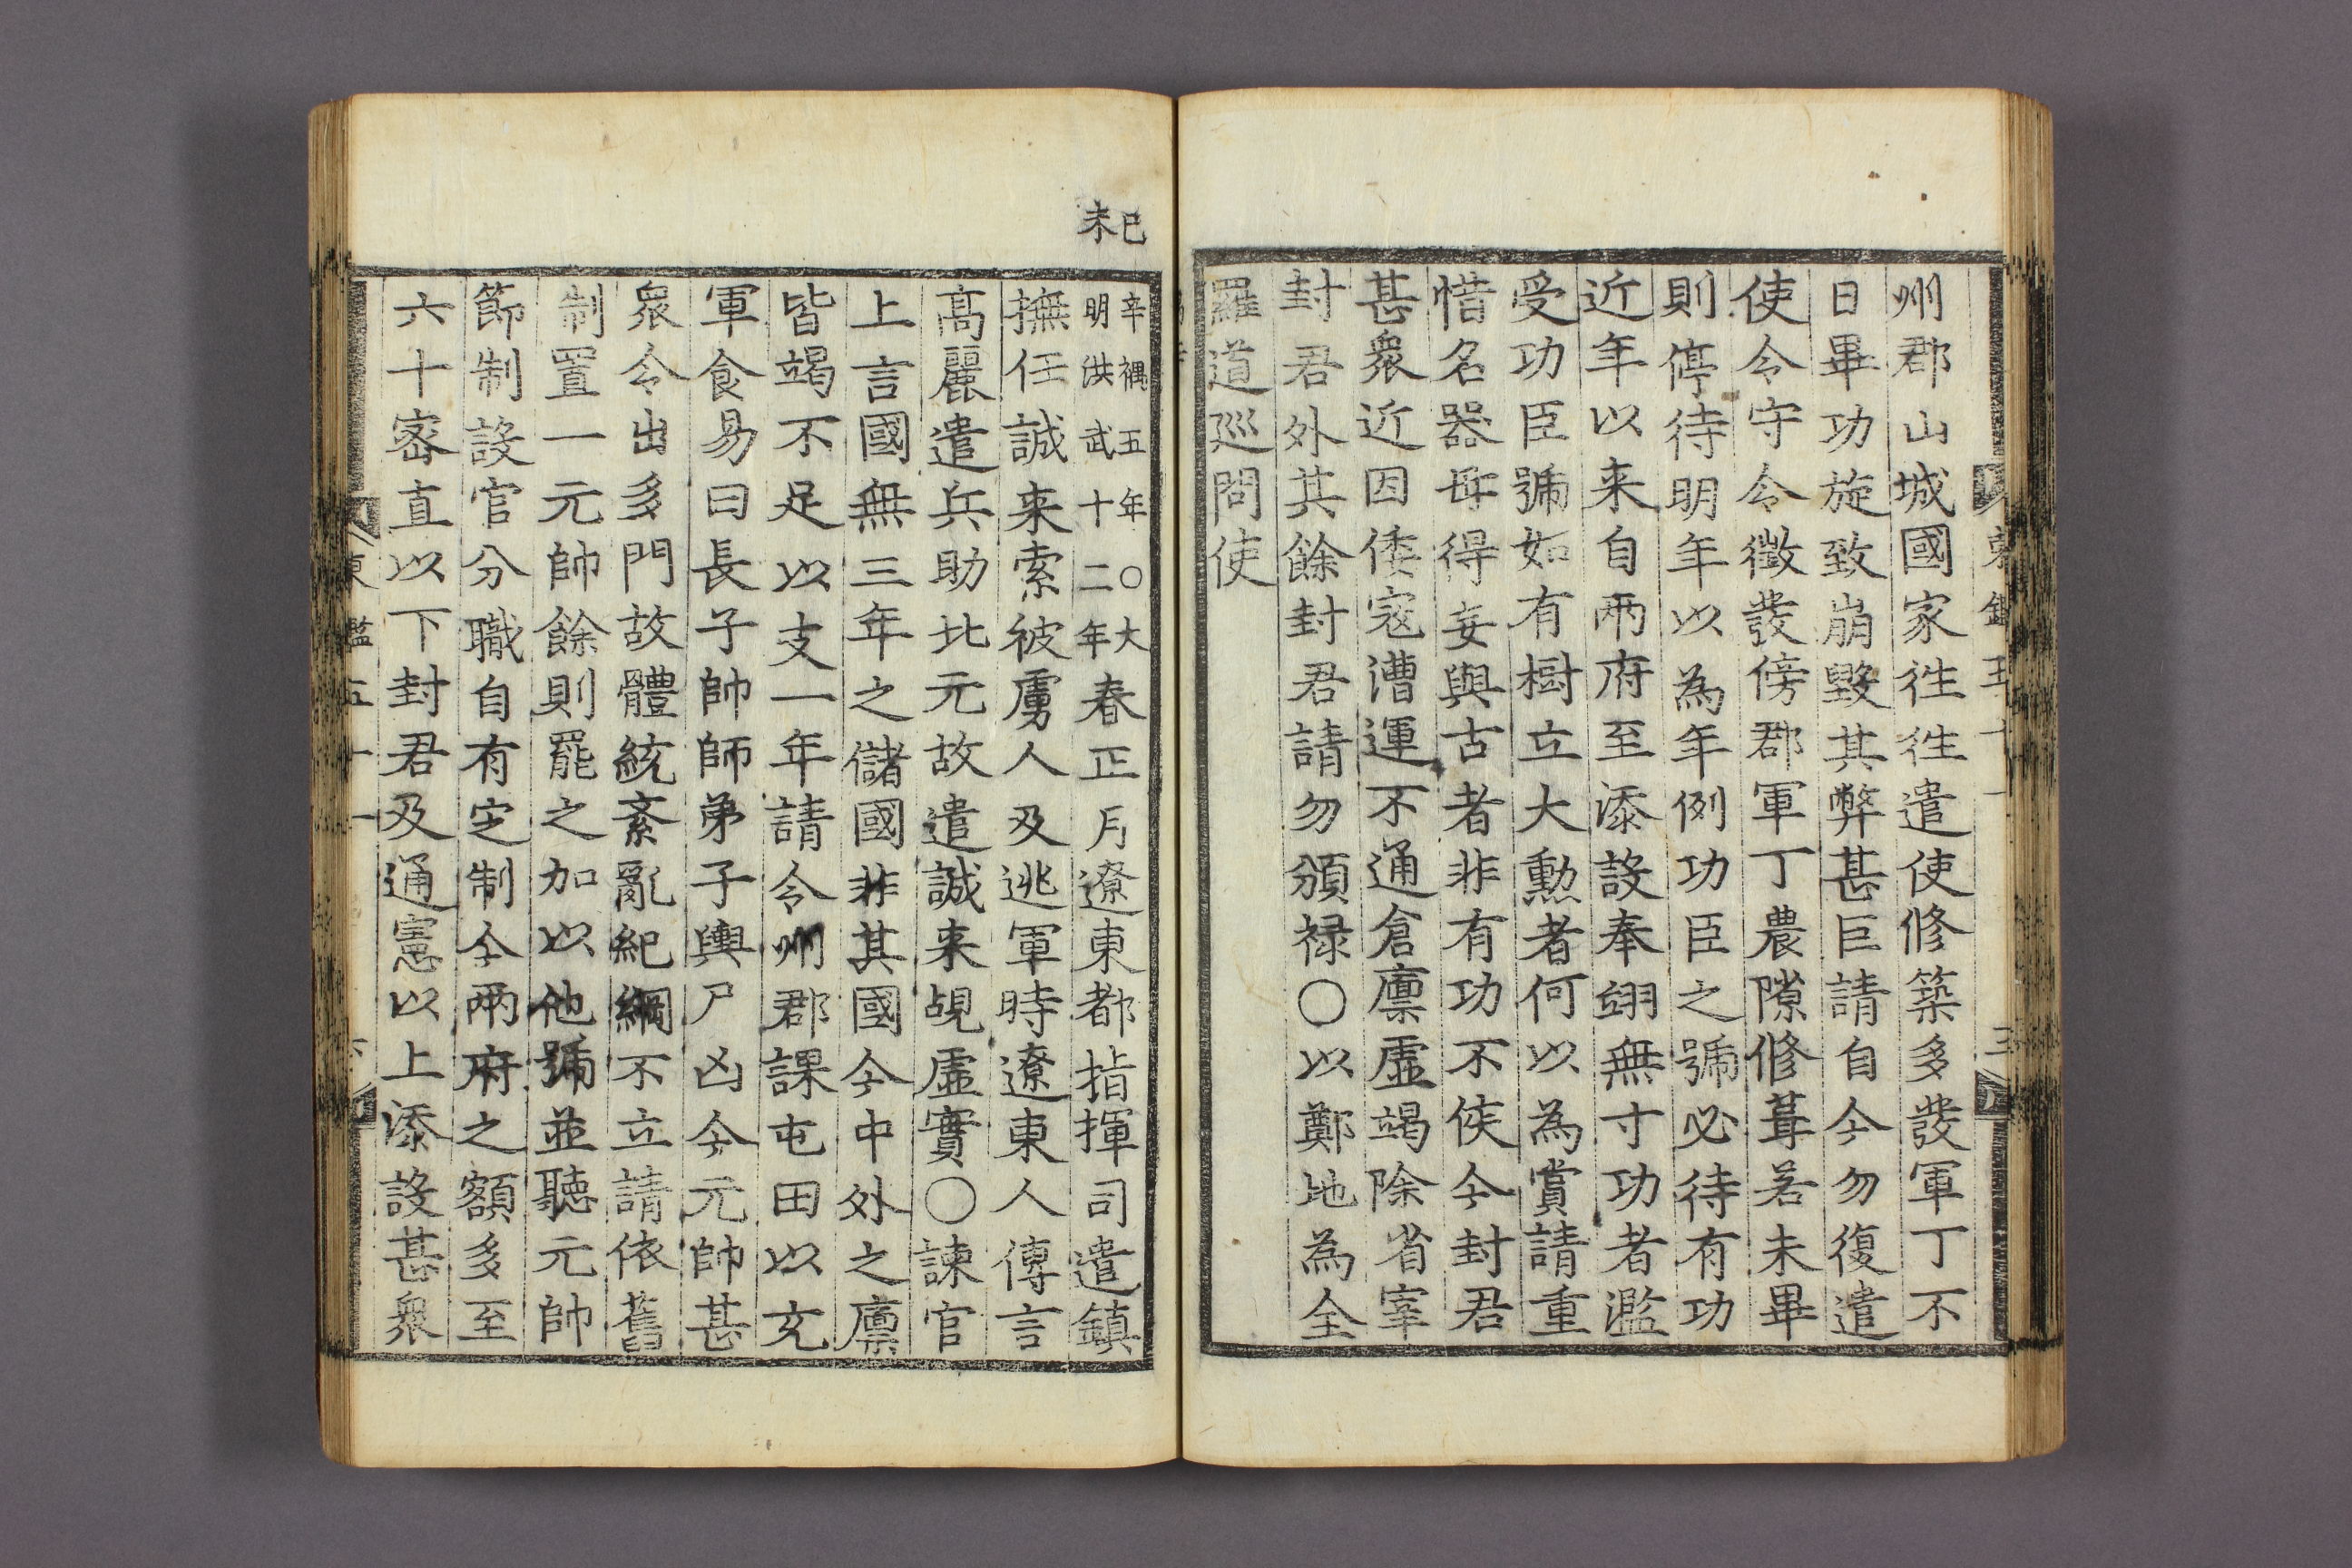 州郡山城國家徃徃遣使修築多發軍丁不
日畢功旋致崩毀其弊甚巨請自今勿復遣
使令守令徵發傍郡軍丁農隙修葺若未畢
則停待明年以爲年例功臣之號必待有功
近年以来自兩府至添設奉翊無寸功者濫
受功臣號如有樹立大勳者何以爲賞請重
惜名器毋得妄與古者非有功不侯今封君
甚衆近因倭寇漕運不通倉廩虛竭除省宰
封君外其餘封君請勿頒禄〇以鄭地爲全
羅道巡問使
己未
辛禑五年〇大明洪武十二年春正月遼東都指揮司遣鎮
撫任誠来索被虜人及逃軍時遼東人傳言
高麗遣兵助北元故遣誠来覘虛實〇諫官
上言國無三年之儲國非其國今中外之廩
皆竭不足以支一年請令州郡課屯田以充
軍食易曰長子帥師弟子輿尸凶今元帥甚
衆令出多門故體統紊亂紀綱不立請依舊
制置一元帥餘則罷之加以他號並聽元帥
節制設官分職自有定制今兩府之額多至
六十密直以下封君及通憲以上添設甚衆